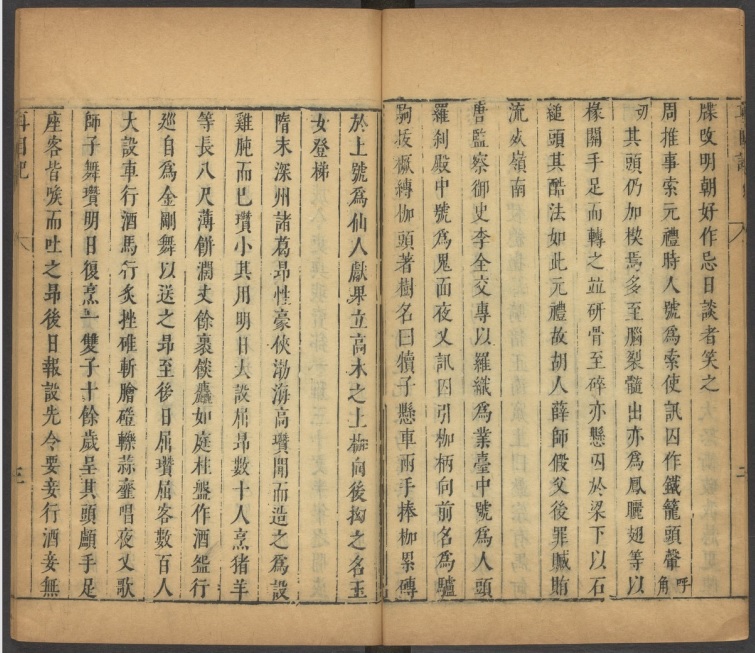 牒改明朝好作忌日談者笑之
周推事索元禮時人號爲索使訊囚作鐵籠頭䪼呼角
其頭仍加楔焉多至腦裂髓出亦爲鳳曬翅等以
椽關手足而轉之並研骨至碎亦懸囚於梁下以石
縋頭其酷法如此元禮故胡人薛師假父後罪贓賄
流死嶺南
唐監察御史李全交專以羅織爲業臺中號爲人頭
羅刹殿中號爲鬼面夜叉訊囚引枷柄向前名爲驢
駒拔橛縛枷頭著樹名曰犢子懸車兩手捧枷累磚
於上號爲仙人獻果立高木之上枷向後拗之名玉
女登梯
隋末深州諸葛昂性豪俠渤海高瓚聞而造之爲設
雞肫而巳瓚小其用明日大設屈昂數十人烹猪羊
等長八尺薄餅濶丈餘裹餤麤如庭柱盤作酒盌行
巡自爲金剛舞以送之昂至後日屈瓚屈客數百人
大設車行酒馬行炙挫碓斬膾磑轢蒜虀唱夜叉歌
師子舞瓚明日復烹一雙子十餘歲呈其頭顱手足
座客皆喉而吐之昂後日報設先令要妾行酒妾無
耳目記
三